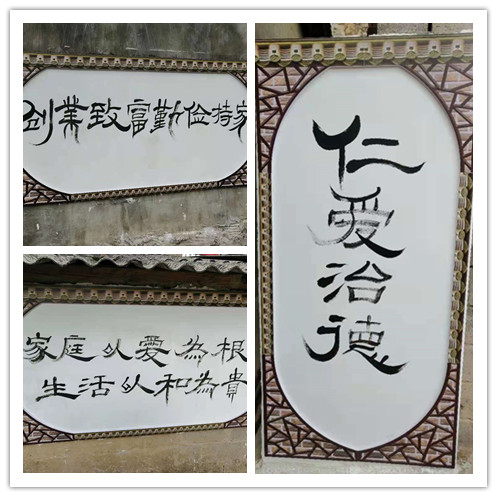 创業致富勤俭持家
家庭以爱為根
生活以和為貴
仁爱治德